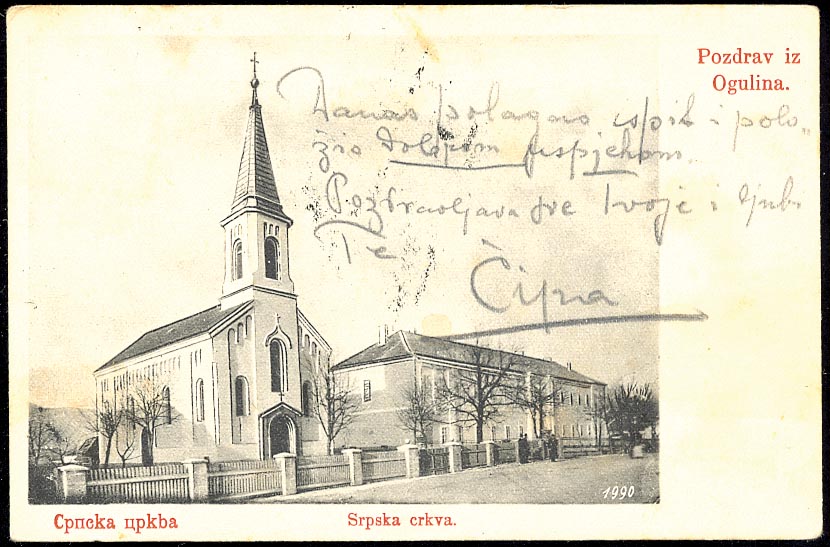 Pozdrav iz
Ogulina.
Danas polagao ispit i polo„
žio dobrim uspjehom.
Pozdravljava sve Tvoje i ljubi
Te
Čipa
1990
Српска црква
Srpska crkva.